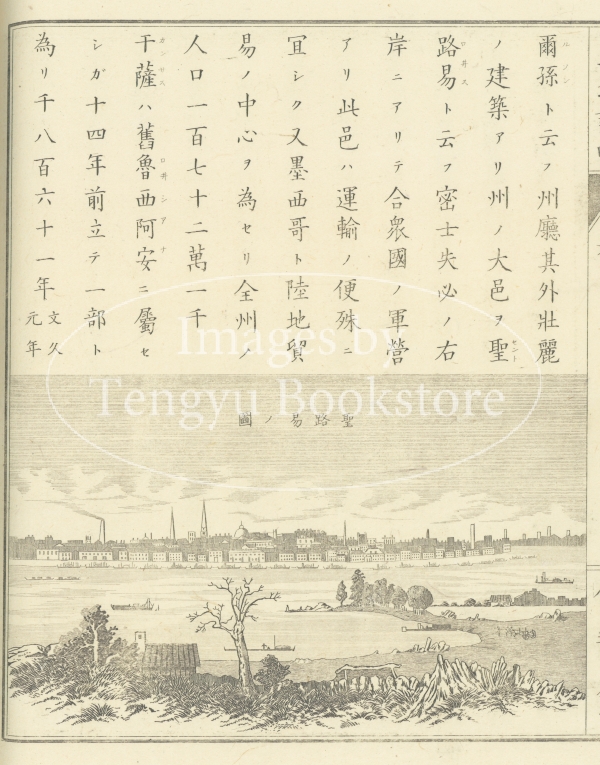 爾孫ト云フ州廳其外壯麗
ノ建築アリ州ノ大邑ヲ聖
路易ト云フ密士失必ノ右
岸ニアリテ合衆國ノ軍營
アリ此邑ハ運輸ノ便殊ニ
冝シク又墨西哥ト陸地貿
易ノ中心ヲ為セリ全州ノ
人口一百七十二萬一千
干薩ハ舊魯西阿安ニ屬セ
シガ十四年前立テ一部ト
為リ千八百六十一年文久元年
聖路易ノ圖
Images by
Tengyu Bookstore